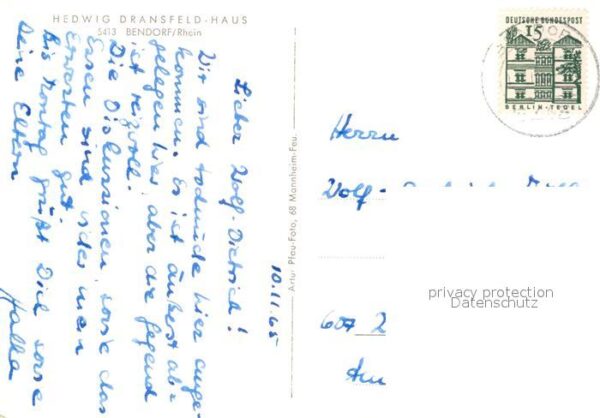 HEDWIG DRANSFELD-HAUS
5413 BENDORF/Rhein
10.11.65
Lieber Wolf-Dietrich!
Wir sind todmüde hier ange-
kommen. Es ist äußerst ab-
gelegen hier, aber die Gegend
ist reizvoll.
Die Diskussionen, sowie das
Essen sind wider mein
Erwarten gut.
Bis Montag grüßt Dich
Deine Eltern
Artur Pfau-Foto, 68 Mannheim-Feu.
DEUTSCHE BUNDESPOST
15
BERLIN-TEGEL
Herrn
Wolf-
privacy protection
Datenschutz
607 2
Am